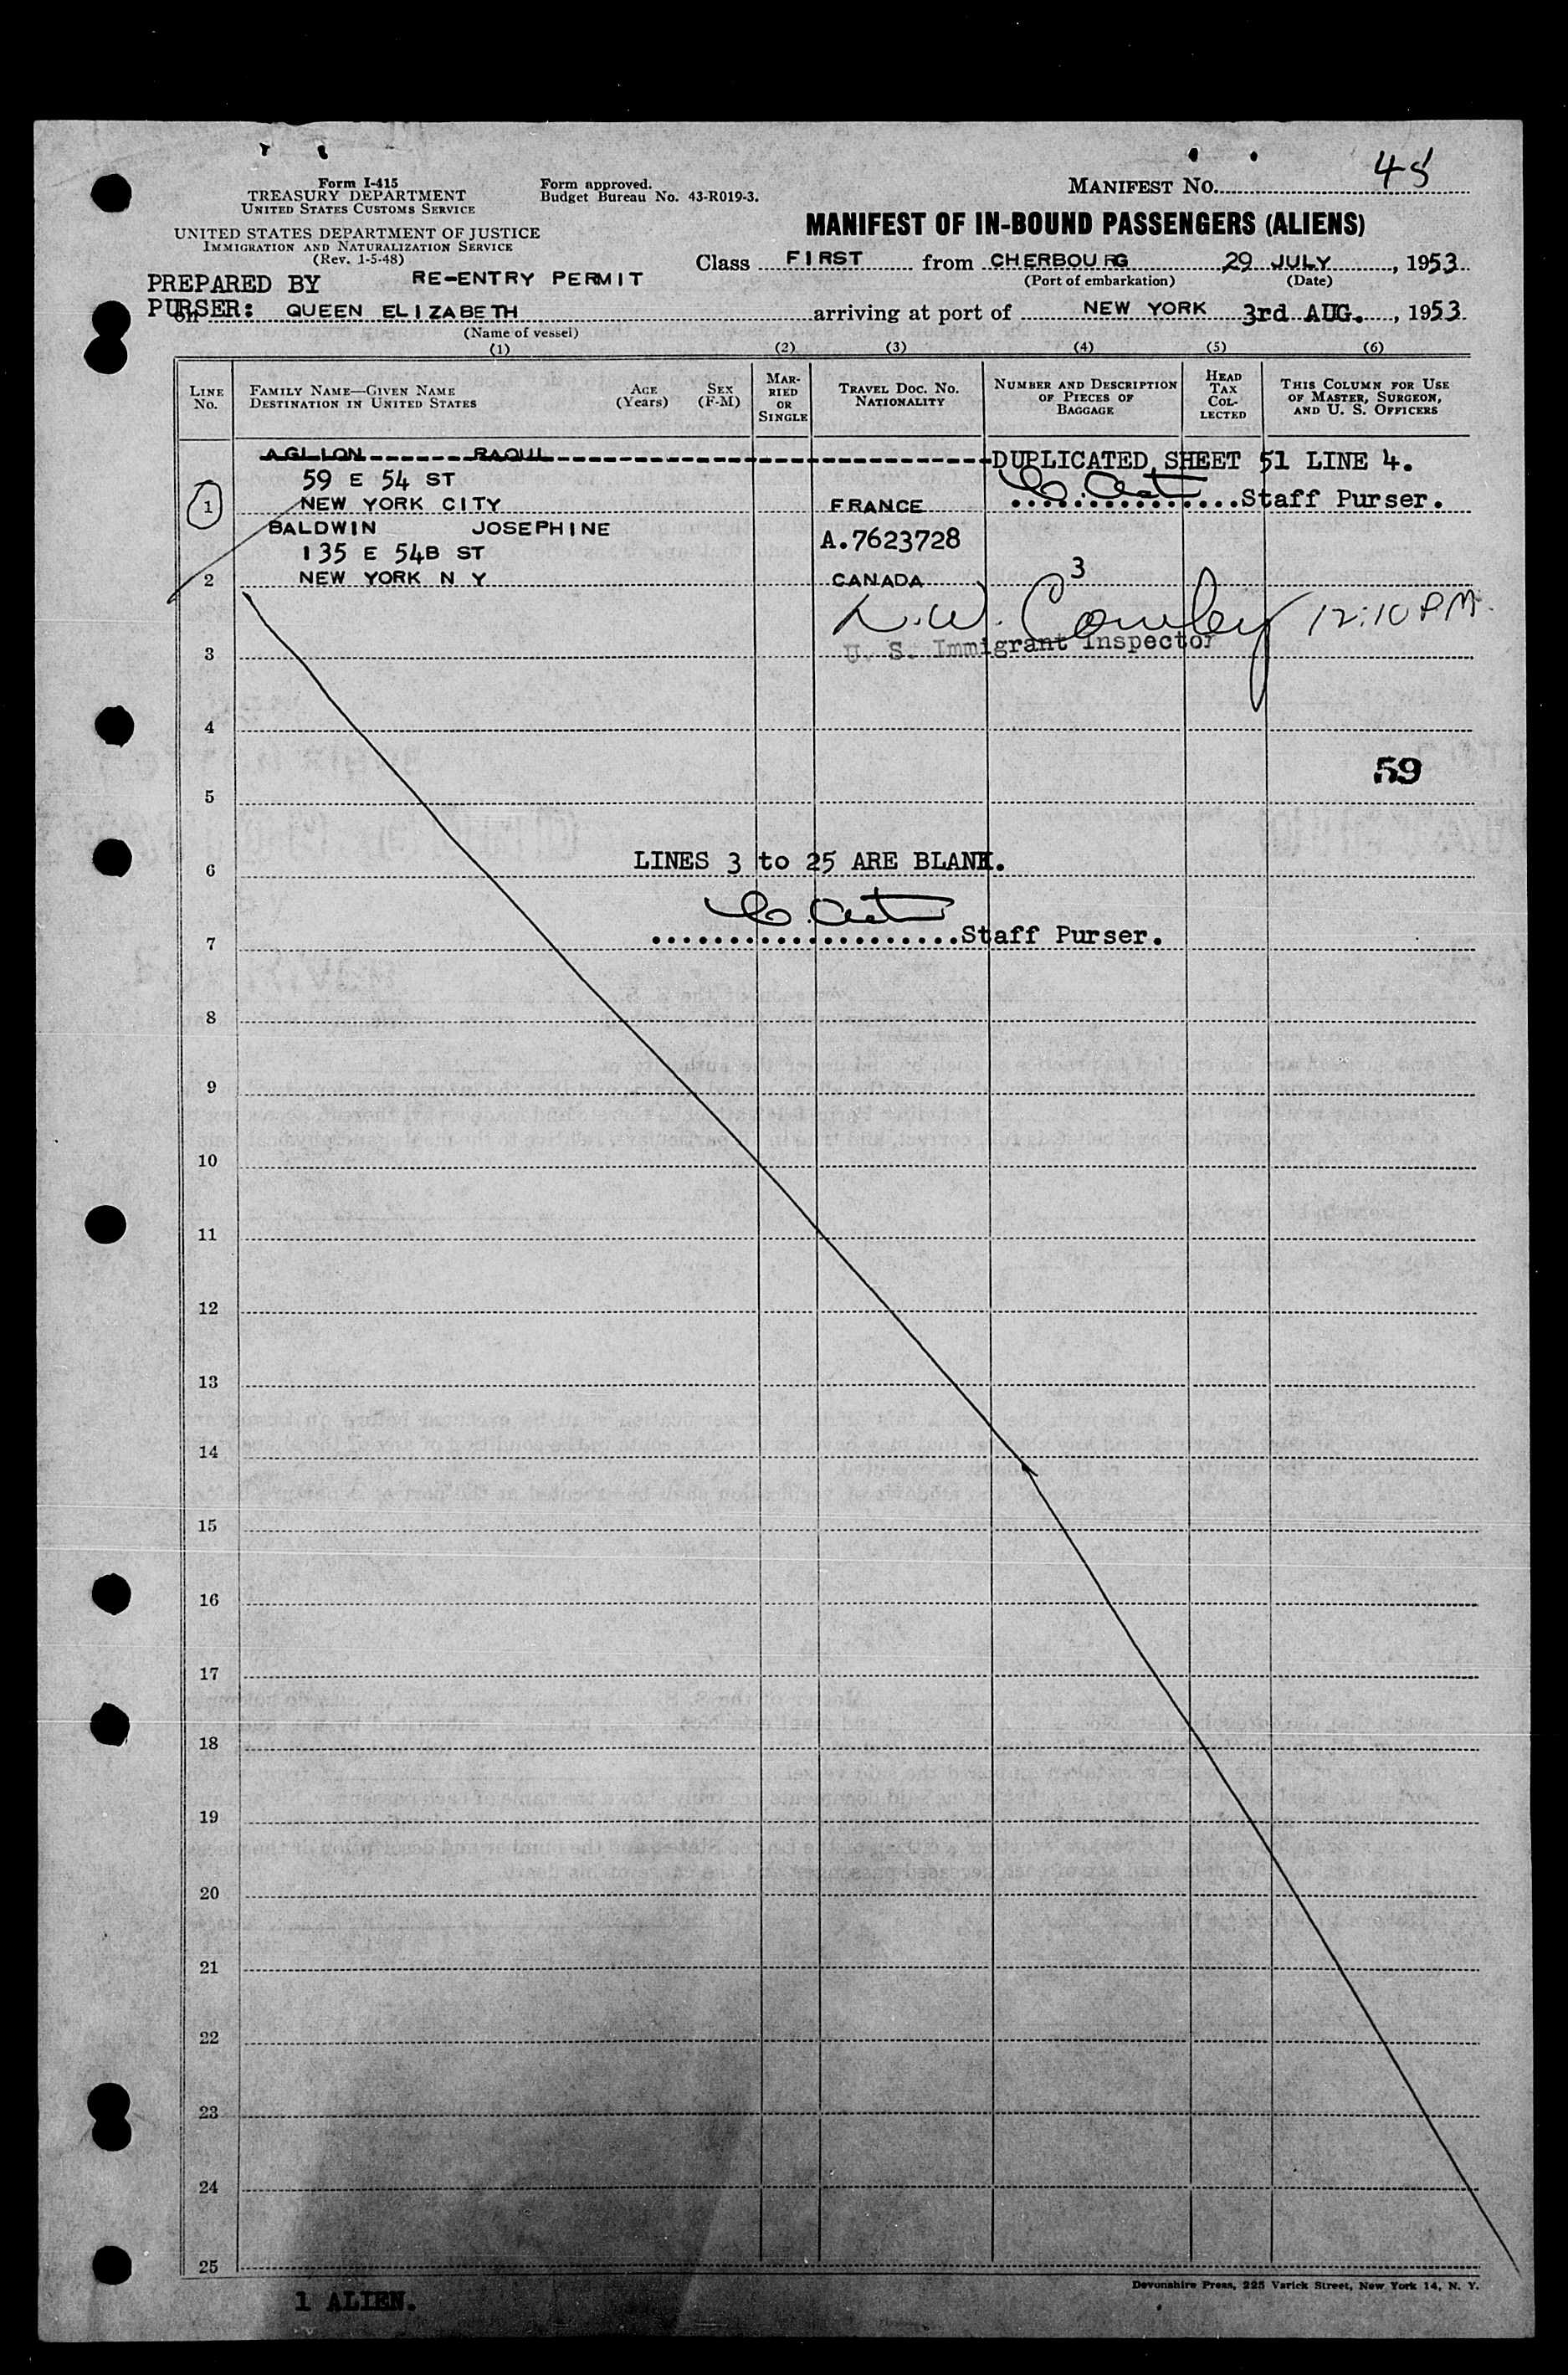 Form I-415
TREASURY DEPARTMENT
UNITED STATES CUSTOMS SERVICE
UNITED STATES DEPARTMENT OF JUSTICE
IMMIGRATION AND NATURALIZATION SERVICE
(Rev. 1-5-48)
Form approved.
Budget Bureau No. 43-R019-3.
MANIFEST NO.
MANIFEST OF IN-BOUND PASSENGERS (ALIENS)
Class FIRST from CHERBOURG 29 JULY, 1953
(Port of embarkation) (Date)
PREPARED BY RE-ENTRY PERMIT
PURSER:
on QUEEN ELIZABETH arriving at port of NEW YORK 3rd AUG., 1953
(Name of vessel)
(1) (2) (3) (4) (5) (6)
LINE NO.
FAMILY NAME—GIVEN NAME
DESTINATION IN UNITED STATES
AGE (Years)
SEX (F-M)
MARRIED OR SINGLE
TRAVEL DOC. NO.
NATIONALITY
NUMBER AND DESCRIPTION OF PIECES OF BAGGAGE
HEAD TAX COLLECTED
THIS COLUMN FOR USE OF MASTER, SURGEON, AND U. S. OFFICERS
AGLION RAOUL DUPLICATED SHEET 51 LINE 4.
59 E 54 ST
1 NEW YORK CITY FRANCE Staff Purser.
BALDWIN JOSEPHINE A.7623728
135 E 54B ST
2 NEW YORK N Y CANADA 3
12:10 PM
3 U. S. Immigrant Inspector
4
59
5
LINES 3 to 25 ARE BLANK.
6
7 Staff Purser.
8
9
10
11
12
13
14
15
16
17
18
19
20
21
22
23
24
25
1 ALIEN.
Devonshire Press, 225 Varick Street, New York 14, N. Y.